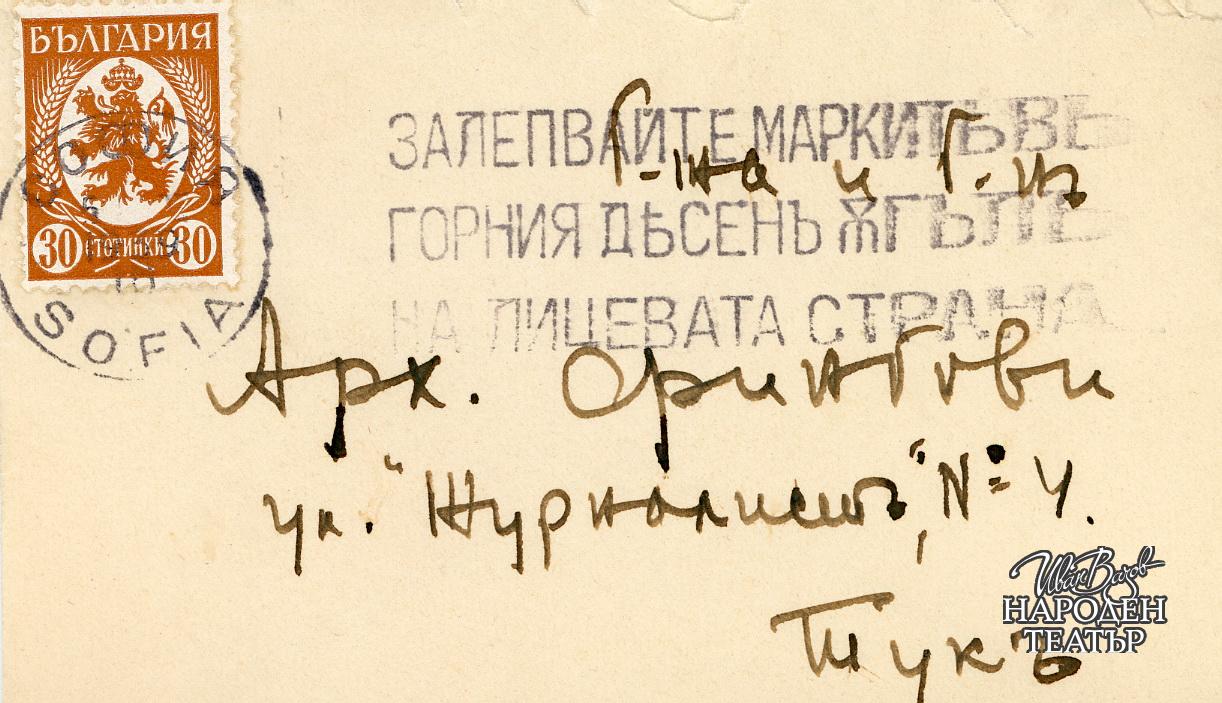 БЪЛГАРИЯ
30 СТОТИНКИ 30
SOFIA
ЗАЛЕПВАЙТЕ МАРКИТѢ ВЪ
ГОРНИЯ ДѢСЕНЪ ѪГЪЛЪ
НА ЛИЦЕВАТА СТРАНА
Г-жа и Г-нъ
Арх.
ул. "Журналистъ", №4.
Тукъ
Иван Вазов
НАРОДЕН
ТЕАТЪР